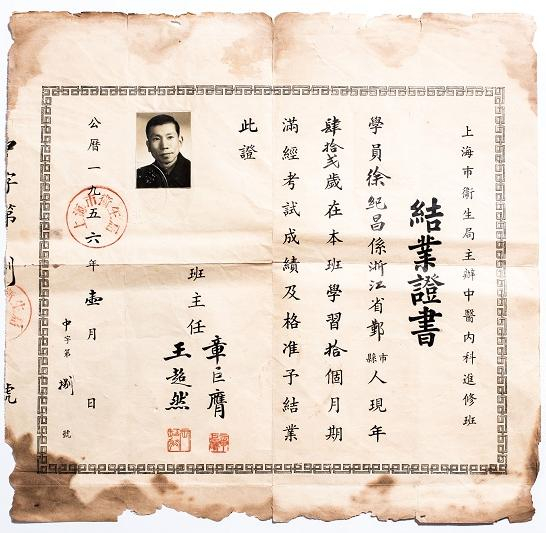 上海市衞生局主辦中醫內科進修班
結業證書
學員徐紀昌係浙江省鄞市縣人現年
肆拾弍歲在本班學習拾個月期
滿經考試成績及格准予結業
此證
班主任
章巨膺
王超然
公曆一九五六年壹月 日
上海市衞生局
中字第捌號
中字第捌號